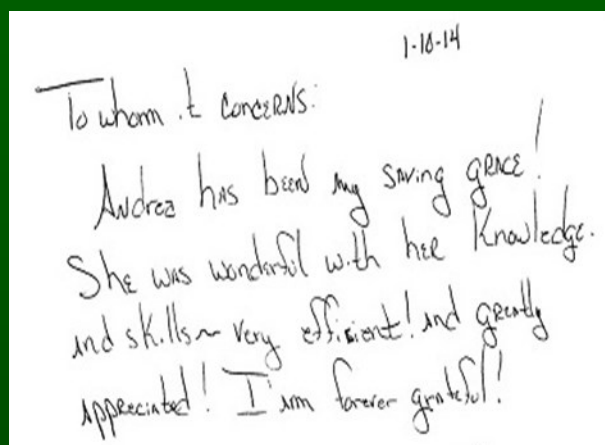 1-10-14
To whom it concerns:
Andrea has been my saving grace!
She was wonderful with her knowledge.
and skills~ very efficient! and greatly
appreciated! I am forever grateful!